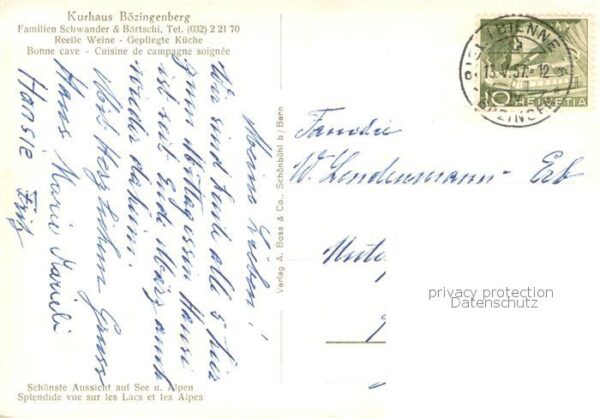 Kurhaus Bözingenberg
Familien Schwander & Bärtschi, Tel. (032) 2 21 70
Reelle Weine - Gepflegte Küche
Bonne cave - Cuisine de campagne soignée
Meine Lieben!
Wir sind heute alle 5 hier
zum Mittagessen Hansi
ist seit Ende März
wieder daheim.
Mit Herzlichem Gruss
Hans Marie Marieli
Hansie Fritz
Schönste Aussicht auf See u. Alpen
Splendide vue sur les Lacs et les Alpes
Verlag A. Boss & Co., Schönbühl b/Bern
BIEL-BIENNE
13.V.57.-12
10 HELVETIA
Familie
W. Lendenmann - Erb
privacy protection
Datenschutz